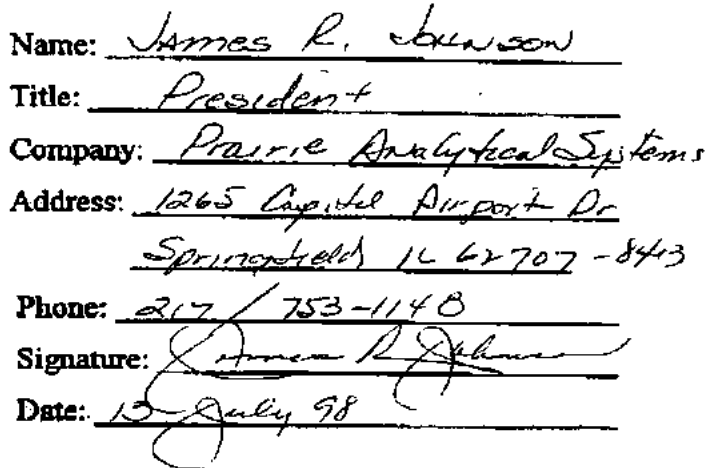 Name: James R. Johnson
Title: President
Company: Prairie Analytical Systems
Address: 1265 Capital Airport Dr
Springfield, IL 62707-8413
Phone: 217/753-1148
Signature: James R Johnson
Date: 13 July 98